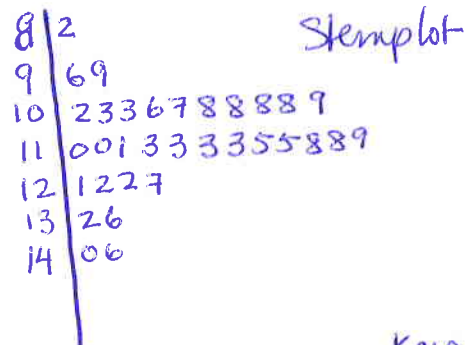 Stemplot
8 | 2
9 | 69
10 | 23367 8 8 8 8 9
11 | 001 33 3355889
12 | 1227
13 | 26
14 | 06